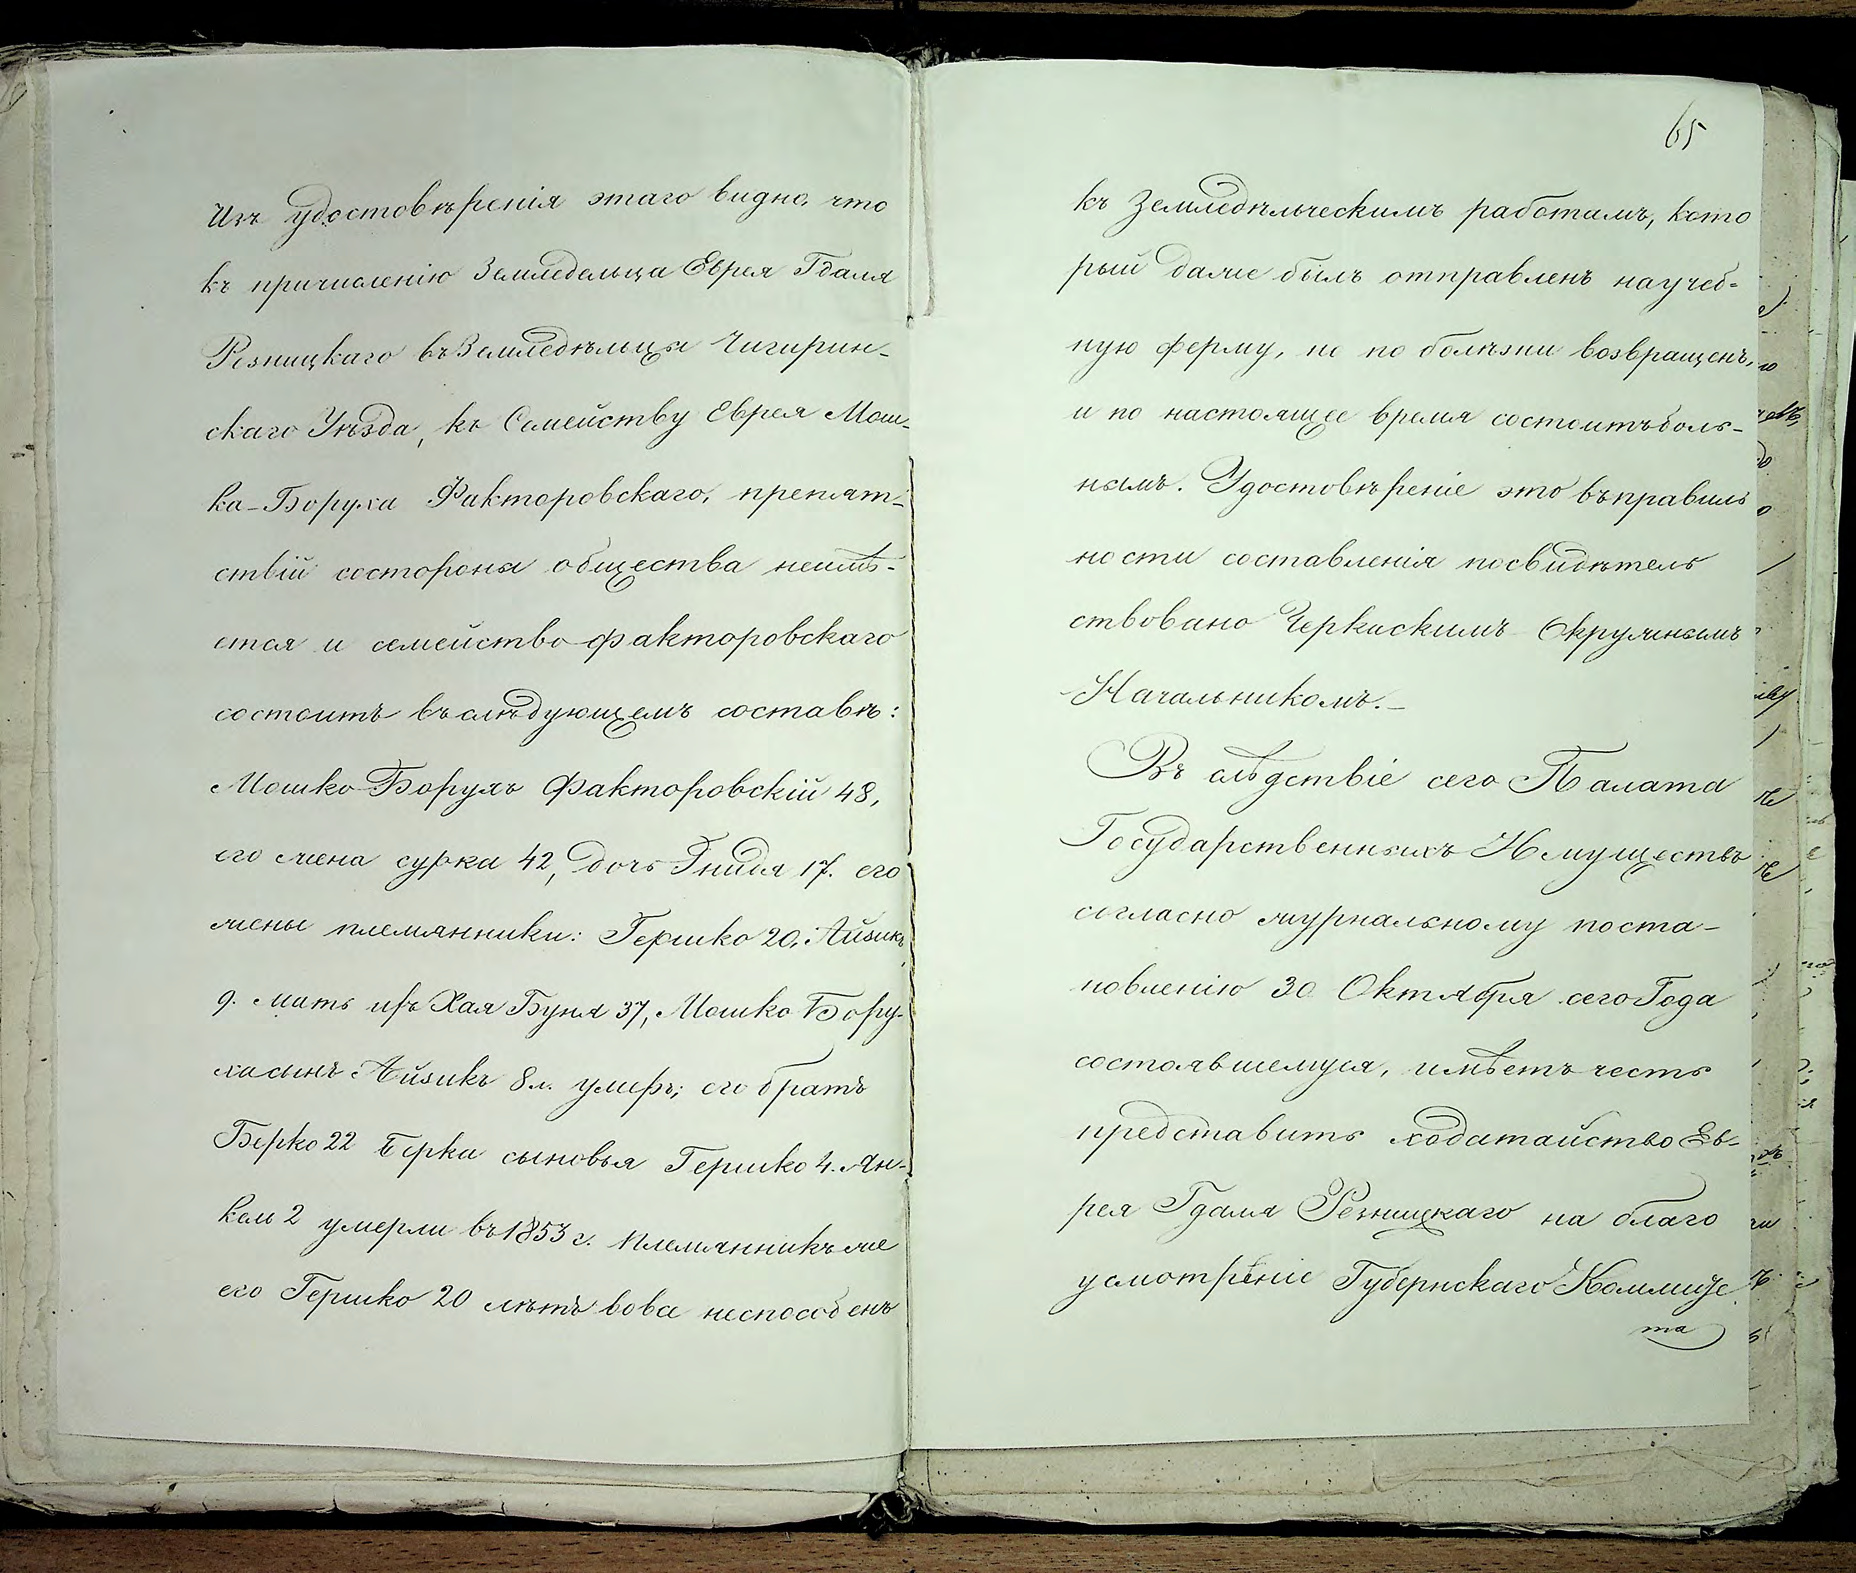 Изъ удостовѣренія этаго видно, что
къ причисленію Земледельца Еврея Гдаля
Резницкаго въ Земледѣльцы Чигирин-
скаго Уѣзда, къ Семейству Еврея Мош-
ка-Боруха Факторовскаго, препят-
ствій состороны общества неимѣ-
ется и семейство Факторовскаго
состоитъ въ слѣдующемъ составѣ:
Мошко Борухъ Факторовскій 48,
его жена сурка 42, дочь Гнидя 17. его
жены племянники: Гершко 20, Айзикъ
9. мать ихъ Хая Буня 37, Мошко Бору-
ха сынъ Айзикъ 8 л. умеръ; его братъ
Берко 22 Берка сыновья Гершко 4. Ян-
кель 2 умерли въ 1853 г. племянникъ же
его Гершко 20 лѣтъ вовсе неспособенъ
65
къ Земледѣльческимъ работамъ, кото
рый даже былъ отправленъ на учеб-
ную ферму, но по болѣзни возвращенъ,
и по настоящее время состоитъ боль-
нымъ. Удостовѣреніе это въ правиль
ности составленія посвидѣтель
ствовано Черкаскимъ Окружнымъ
Начальникомъ.-
Въ слѣдствіе сего Палата
Государственныхъ Имуществъ
согласно журнальному поста-
новленію 30 Октября сего Года
состоявшемуся, имѣетъ честь
представить ходатайство Ев-
рея Гдаля Резницкаго на благо
усмотрѣніе Губернскаго Коммите
та